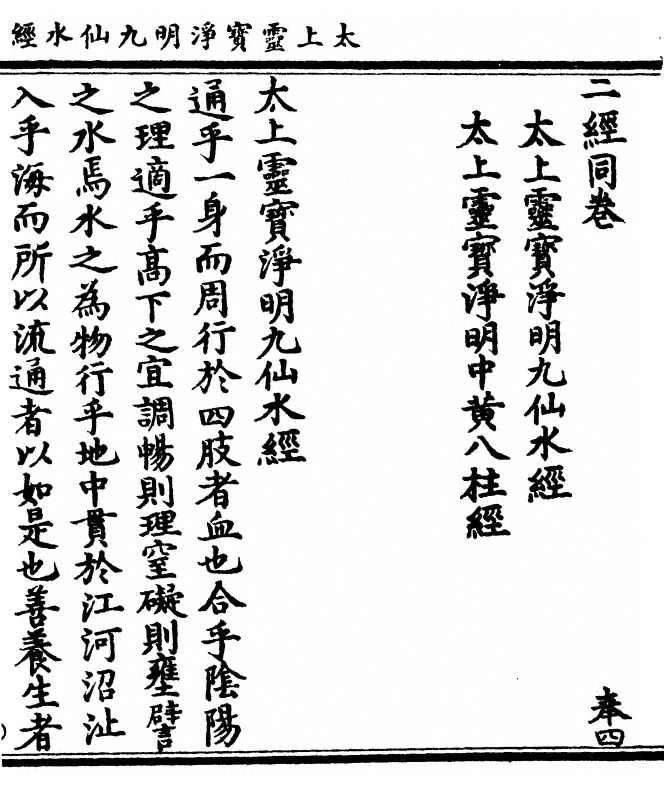 太上靈寶淨明九仙水經
二經同卷　奉四
太上靈寶淨明九仙水經
太上靈寶淨明中黃八柱經
太上靈寶淨明九仙水經
通乎一身而周行於四肢者血也合乎陰陽
之理適乎高下之宜調暢則理窒礙則壅譬
之水焉水之為物行乎地中貫於江河沼沚
入乎海而所以流通者以如是也善養生者